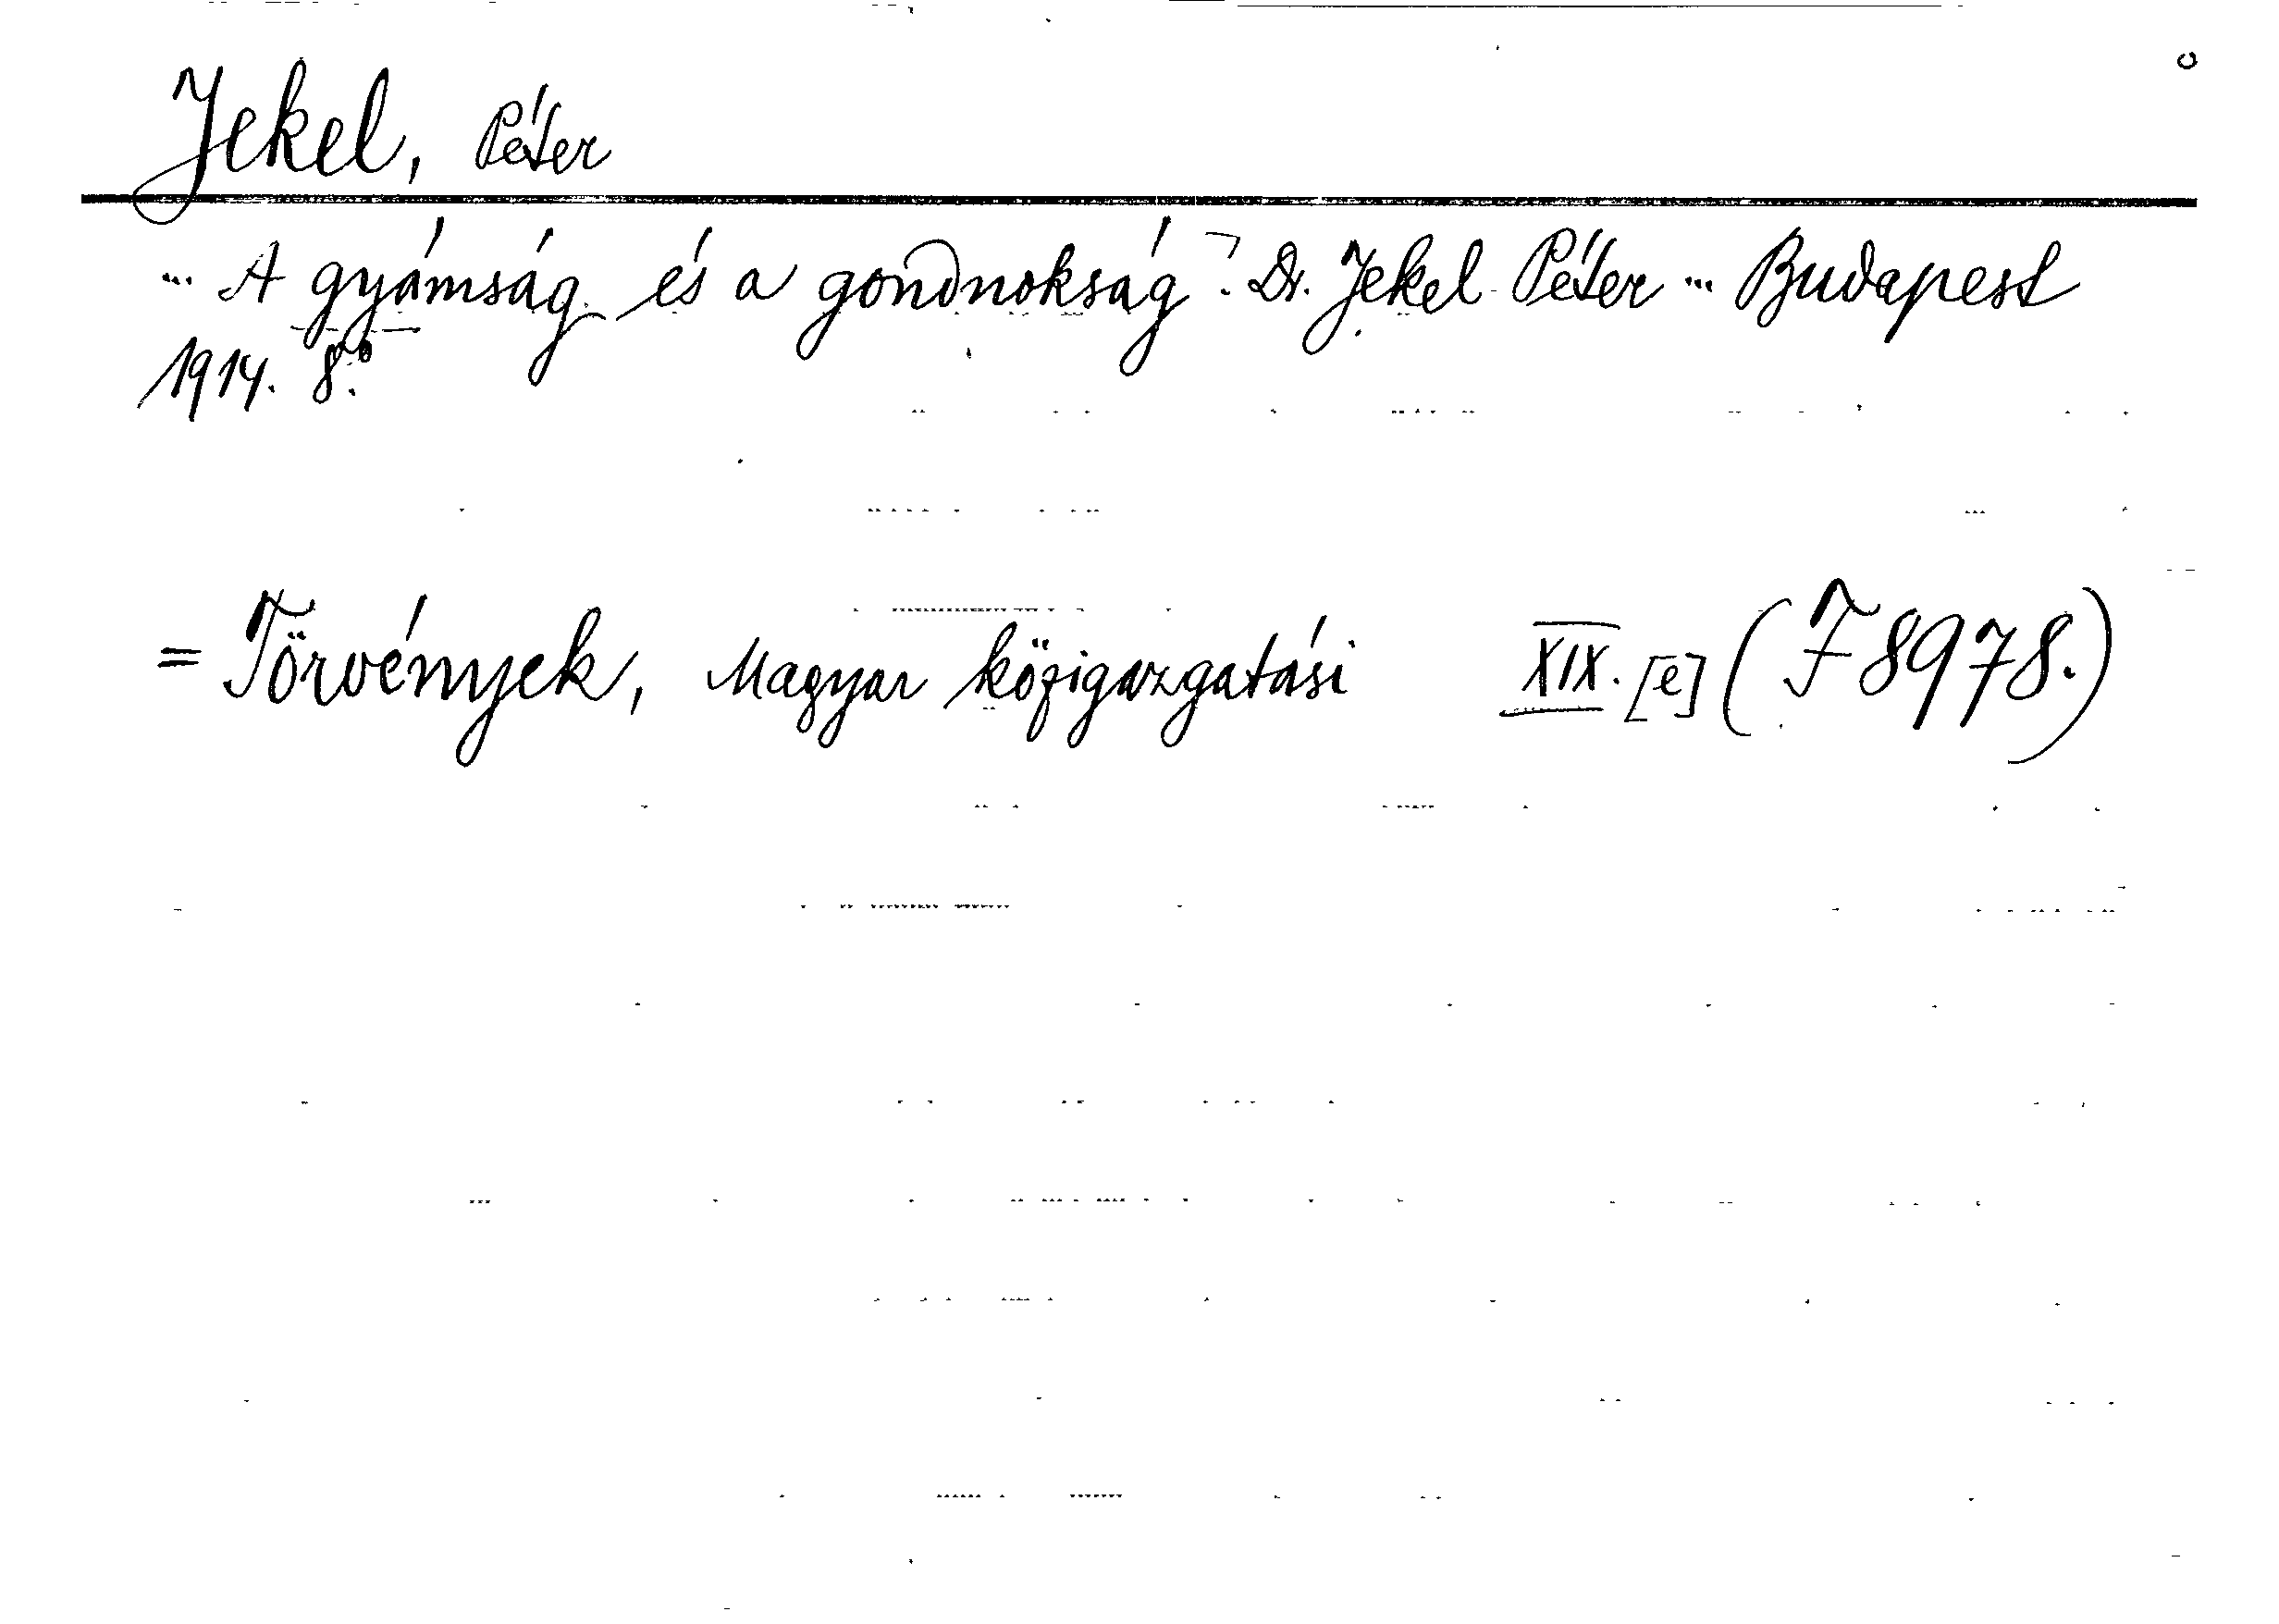 Jekel, Péter
... A gyámság és a gondnokság. Dr. Jekel Péter ... Budapest
1914. 8º.
= Törvények, Magyar közigazgatási XIX. [e] (F 8978.)